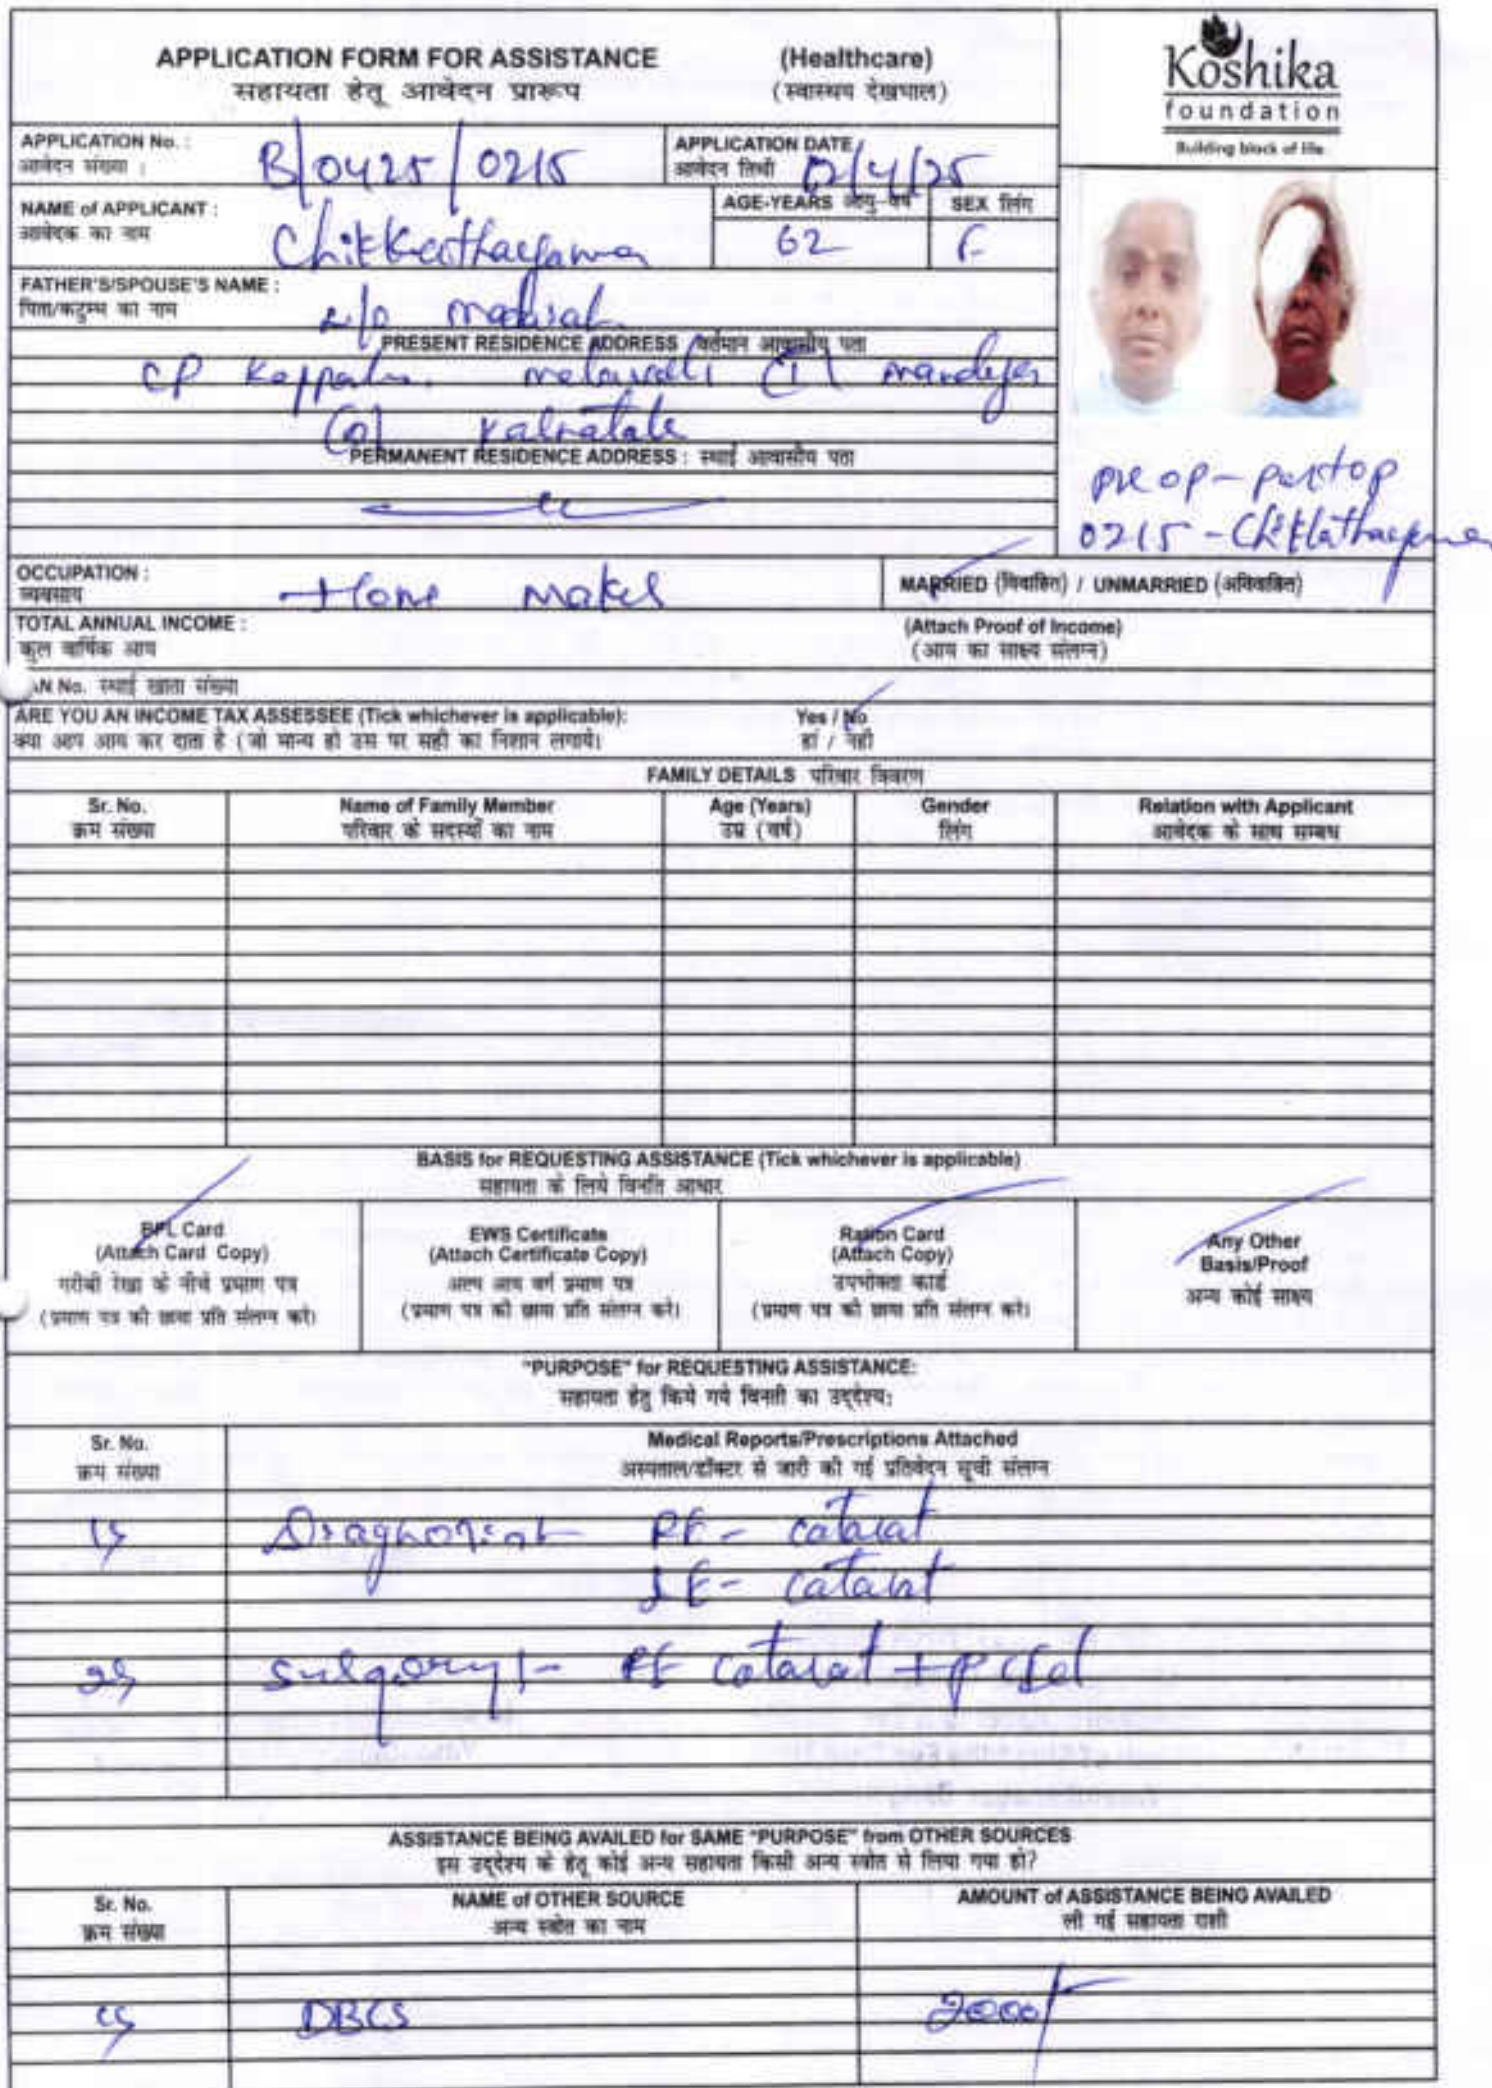 APPLICATION FORM FOR ASSISTANCE (Healthcare)
सहायता हेतू आवेदन प्रारूप (स्वास्थय देखभाल)
Koshika
foundation
Building block of life
APPLICATION No. : B/0425/0215
आवेदन संख्या :
APPLICATION DATE
आवेदन तिथी 12/4/25
NAME of APPLICANT :
आवेदक का नाम
AGE-YEARS आयु-वर्ष 62
SEX लिंग F
FATHER'S/SPOUSE'S NAME :
पिता/कटुम्ब का नाम
PRESENT RESIDENCE ADDRESS वर्तमान आवासीय पता
CP
PERMANENT RESIDENCE ADDRESS : स्थाई आवासीय पता
0215 -
OCCUPATION : Home Maker
व्यवसाय
MARRIED (विवाहित) / UNMARRIED (अविवाहित)
TOTAL ANNUAL INCOME :
कुल वार्षिक आय
(Attach Proof of Income)
(आय का साक्ष्य संलग्न)
AN No. स्थाई खाता संख्या
ARE YOU AN INCOME TAX ASSESSEE (Tick whichever is applicable): Yes / No
क्या आप आय कर दाता है (जो मान्य हो उस पर सही का निशान लगाये। हां / नही
FAMILY DETAILS परिवार विवरण
Sr. No. Name of Family Member Age (Years) Gender Relation with Applicant
क्रम संख्या परिवार के सदस्यों का नाम उम्र (वर्ष) लिंग आवेदक के साथ सम्बध
BASIS for REQUESTING ASSISTANCE (Tick whichever is applicable)
सहायता के लिये विनति आधार
BPL Card
(Attach Card Copy)
गरीबी रेखा के नीचे प्रमाण पत्र
(प्रमाण पत्र की छाया प्रति संलग्न करे।
EWS Certificate
(Attach Certificate Copy)
अल्प आय वर्ग प्रमाण पत्र
(प्रमाण पत्र की छाया प्रति संलग्न करे।
Ration Card
(Attach Copy)
उपभोक्ता कार्ड
(प्रमाण पत्र की छाया प्रति संलग्न करे।
Any Other
Basis/Proof
अन्य कोई साक्ष्य
"PURPOSE" for REQUESTING ASSISTANCE:
सहायता हेतु किये गये विनती का उद्देश्य:
Sr. No. Medical Reports/Prescriptions Attached
क्रम संख्या अस्पताल/डॉक्टर से जारी की गई प्रतिवेदन सूची संलग्न
RE - catarat
LE - catarat
RE catarat +
ASSISTANCE BEING AVAILED for SAME "PURPOSE" from OTHER SOURCES
इस उद्देश्य के हेतू कोई अन्य सहायता किसी अन्य स्त्रोत से लिया गया हो?
Sr. No. NAME of OTHER SOURCE AMOUNT of ASSISTANCE BEING AVAILED
क्रम संख्या अन्य स्त्रोत का नाम ली गई सहायता राशी
DBCS 2000/